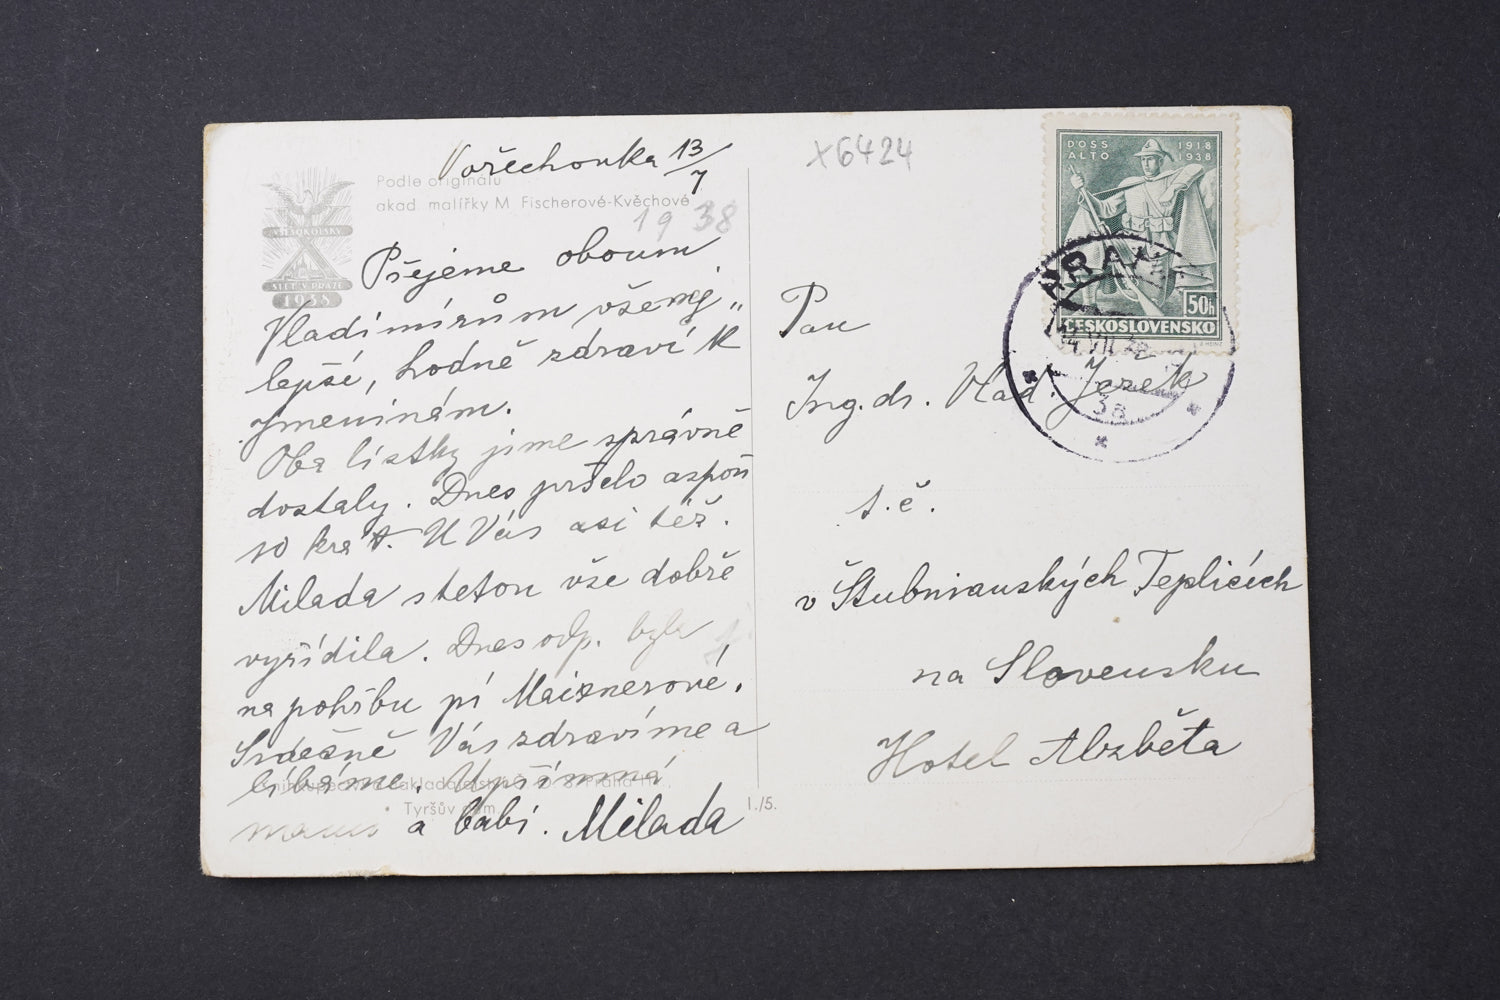 Vořechovka 13/7
Podle originálu
akad. malířky M. Fischerové-Kvěchové
1938
VŠESOKOLSKÝ
X
SLET V PRAZE
1938
Přejeme oboum
Vladimírům všenej„
lepší, hodně zdraví k
jmeninám.
Oba lístky jsme správně
dostaly. Dnes pršelo aspoň
10 krát. U Vás asi též.
Milada s tetou vše dobře
vyřídila. Dnes odp. byla
na pohřbu pí Maiznerové.
Srdečně Vás zdravíme a
líbáme. Upřímná
a babi. Milada
Tyršův dům
I./5.
X6424
DOSS ALTO 1918 1938
50h
ČESKOSLOVENSKO
14.VII.38
3a
Pan
Ing. dr. Vlad. Jezek
t.č.
v Štubnianských Teplicích
na Slovensku
Hotel Alzběta